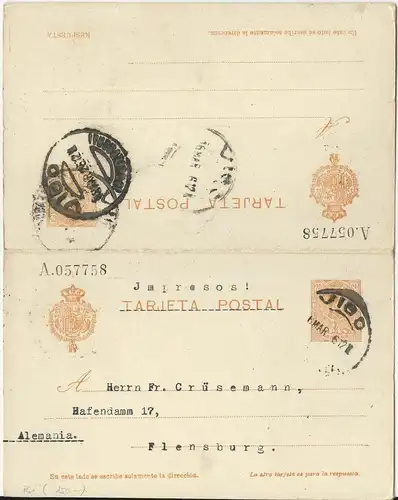 RESPUESTA
En este lado se escribe solamente la dirección.
A
TARJETA POSTAL
A.057758
VIGO
A.057758
Jmpresos!
TARJETA POSTAL
VIGO
A Herrn Fr. Crüsemann,
Hafendamm 17,
Alemania.
Flensburg.
En este lado se escribe solamente la dirección.
La otra tarjeta es para la respuesta.